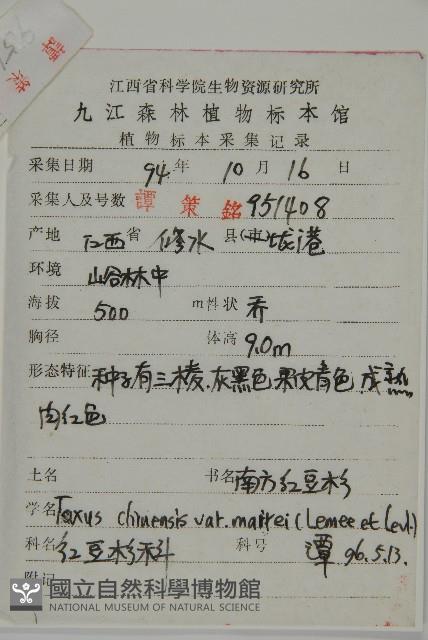 江西省科学院生物资源研究所
九江森林植物标本馆
植物标本采集记录
采集日期 94年 10月 16日
采集人及号数 譚策銘 951408
产地 江西省 修水县(市)垅港
环境 山谷林中
海拔 500 m性状 乔
胸径 体高 9.0m
形态特征 种子有三棱.灰黑色.果皮青色.成熟
肉红色
土名 书名 南方红豆杉
学名 Taxus chinensis var. mairei (Lemee et Levl.)
科名 红豆杉科 科号 譚 96.5.13.
附记
國立自然科學博物館
NATIONAL MUSEUM OF NATURAL SCIENCE